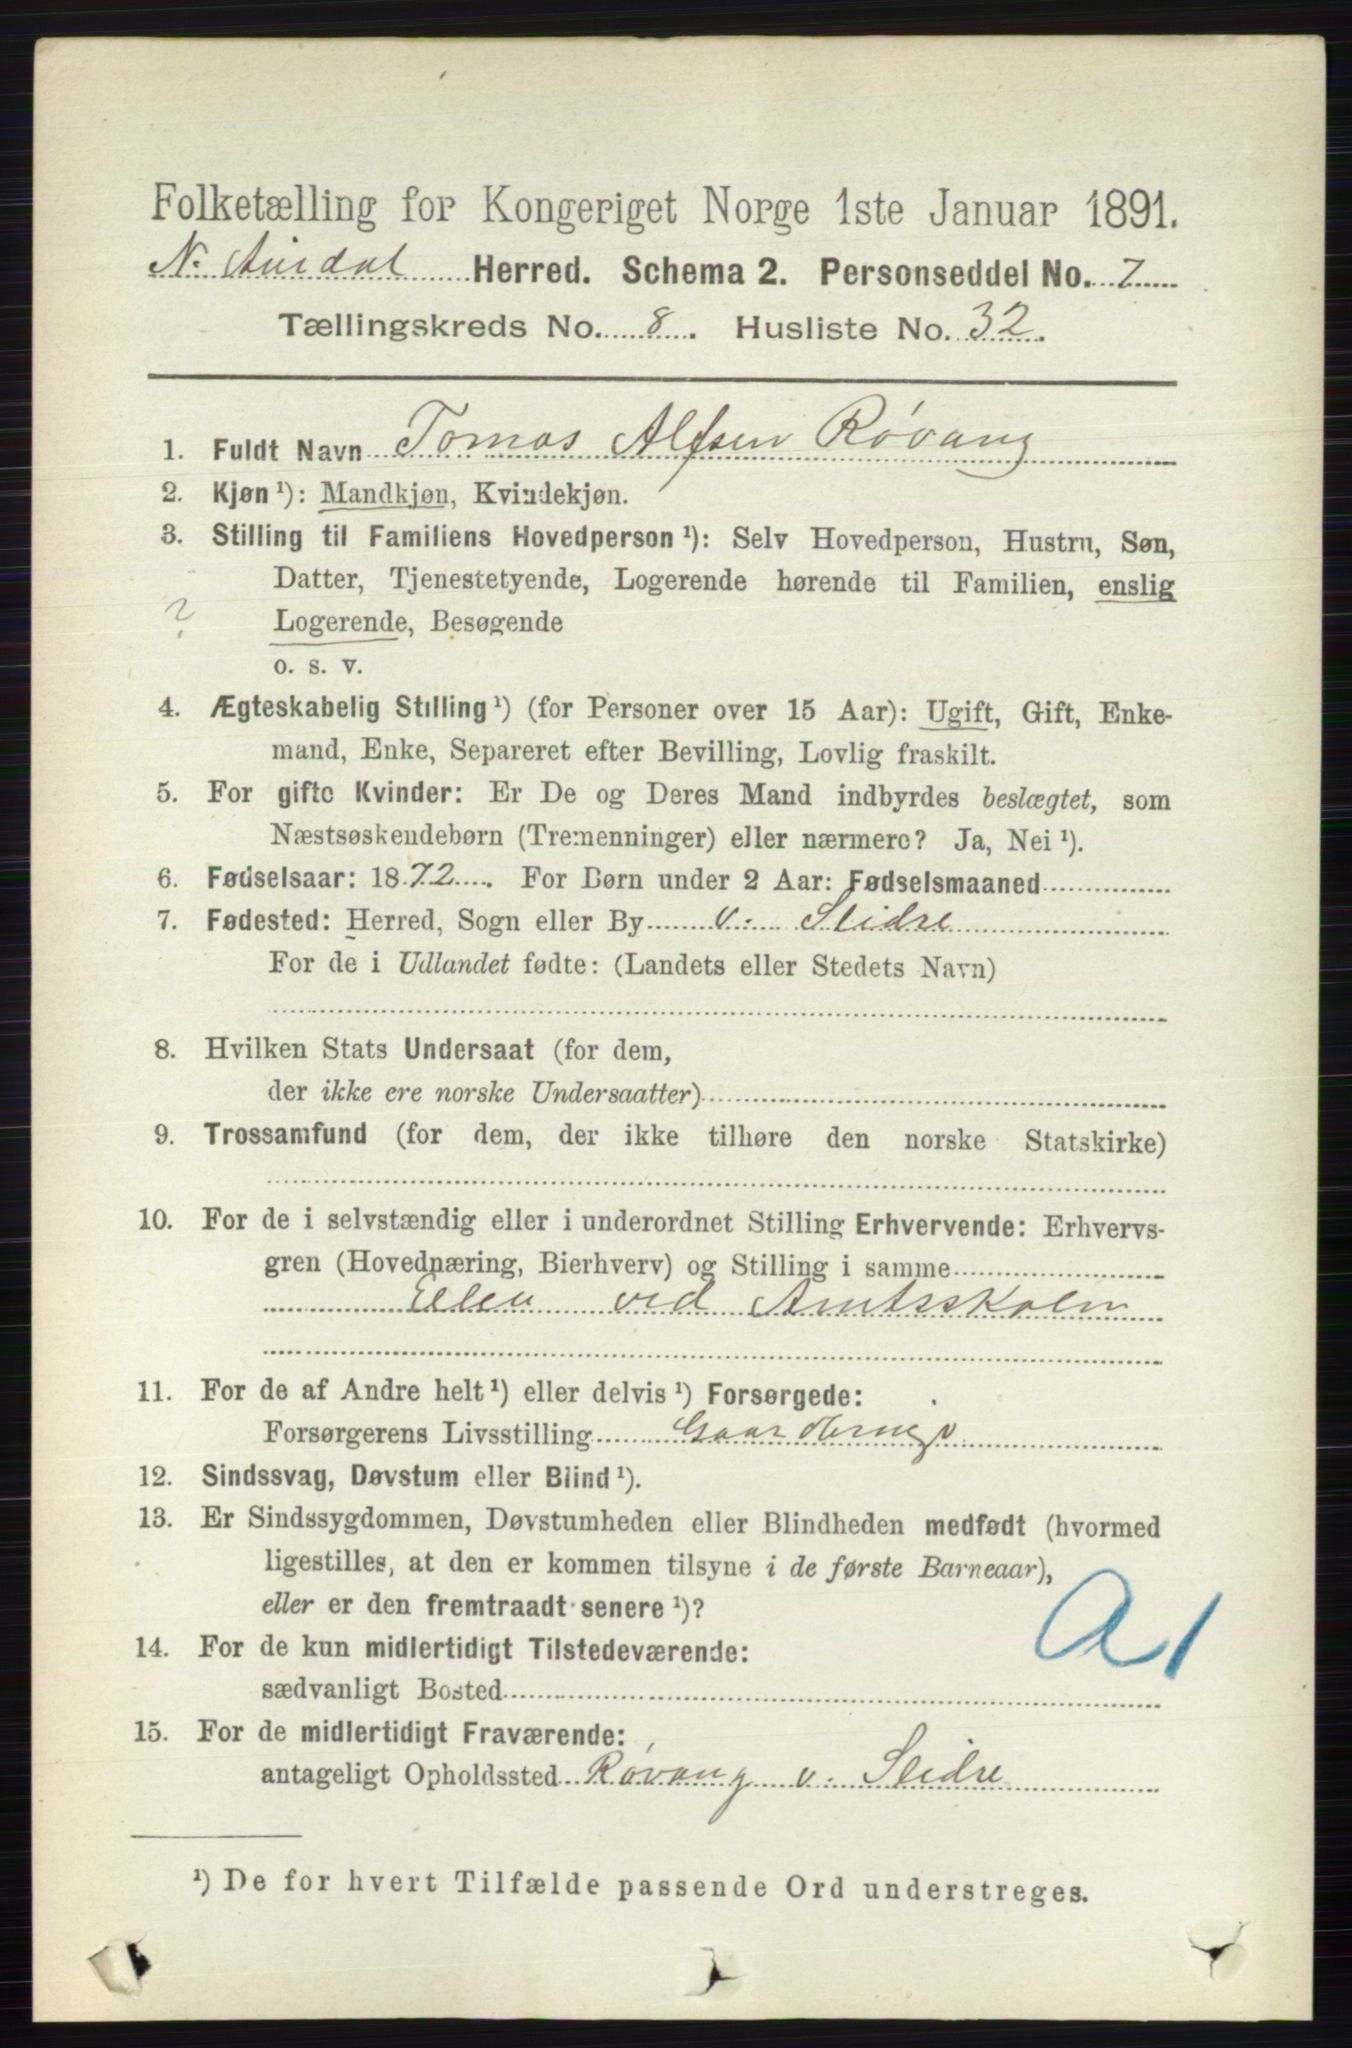 Folketælling for Kongeriget Norge 1ste Januar 1891.
N. Aurdal Herred. Schema 2. Personseddel No. 7
Tællingskreds No. 8. Husliste No. 32.
1. Fuldt Navn Tomas Alfsen Røvang
2. Kjøn¹): Mandkjøn, Kvindekjøn.
3. Stilling til Familiens Hovedperson¹): Selv Hovedperson, Hustru, Søn,
Datter, Tjenestetyende, Logerende hørende til Familien, enslig
? Logerende, Besøgende
o. s. v.
4. Ægteskabelig Stilling¹) (for Personer over 15 Aar): Ugift, Gift, Enke-
mand, Enke, Separeret efter Bevilling, Lovlig fraskilt.
5. For gifte Kvinder: Er De og Deres Mand indbyrdes beslægtet, som
Næstsøskendebørn (Tremenninger) eller nærmere? Ja, Nei¹).
6. Fødselsaar: 1872. For Børn under 2 Aar: Fødselsmaaned
7. Fødested: Herred, Sogn eller By v. Slidre
For de i Udlandet fødte: (Landets eller Stedets Navn)
8. Hvilken Stats Undersaat (for dem,
der ikke ere norske Undersaatter)
9. Trossamfund (for dem, der ikke tilhøre den norske Statskirke)
10. For de i selvstændig eller i underordnet Stilling Erhvervende: Erhvervs-
gren (Hovednæring, Bierhverv) og Stilling i samme
Elev ved Amtsskolen
11. For de af Andre helt¹) eller delvis¹) Forsørgede:
Forsørgerens Livsstilling
12. Sindssvag, Døvstum eller Blind¹).
13. Er Sindssygdommen, Døvstumheden eller Blindheden medfødt (hvormed
ligestilles, at den er kommen tilsyne i de første Barneaar),
eller er den fremtraadt senere¹)?
A1
14. For de kun midlertidigt Tilstedeværende:
sædvanligt Bosted
15. For de midlertidigt Fraværende:
antageligt Opholdssted Røvang v. Slidre
¹) De for hvert Tilfælde passende Ord understreges.